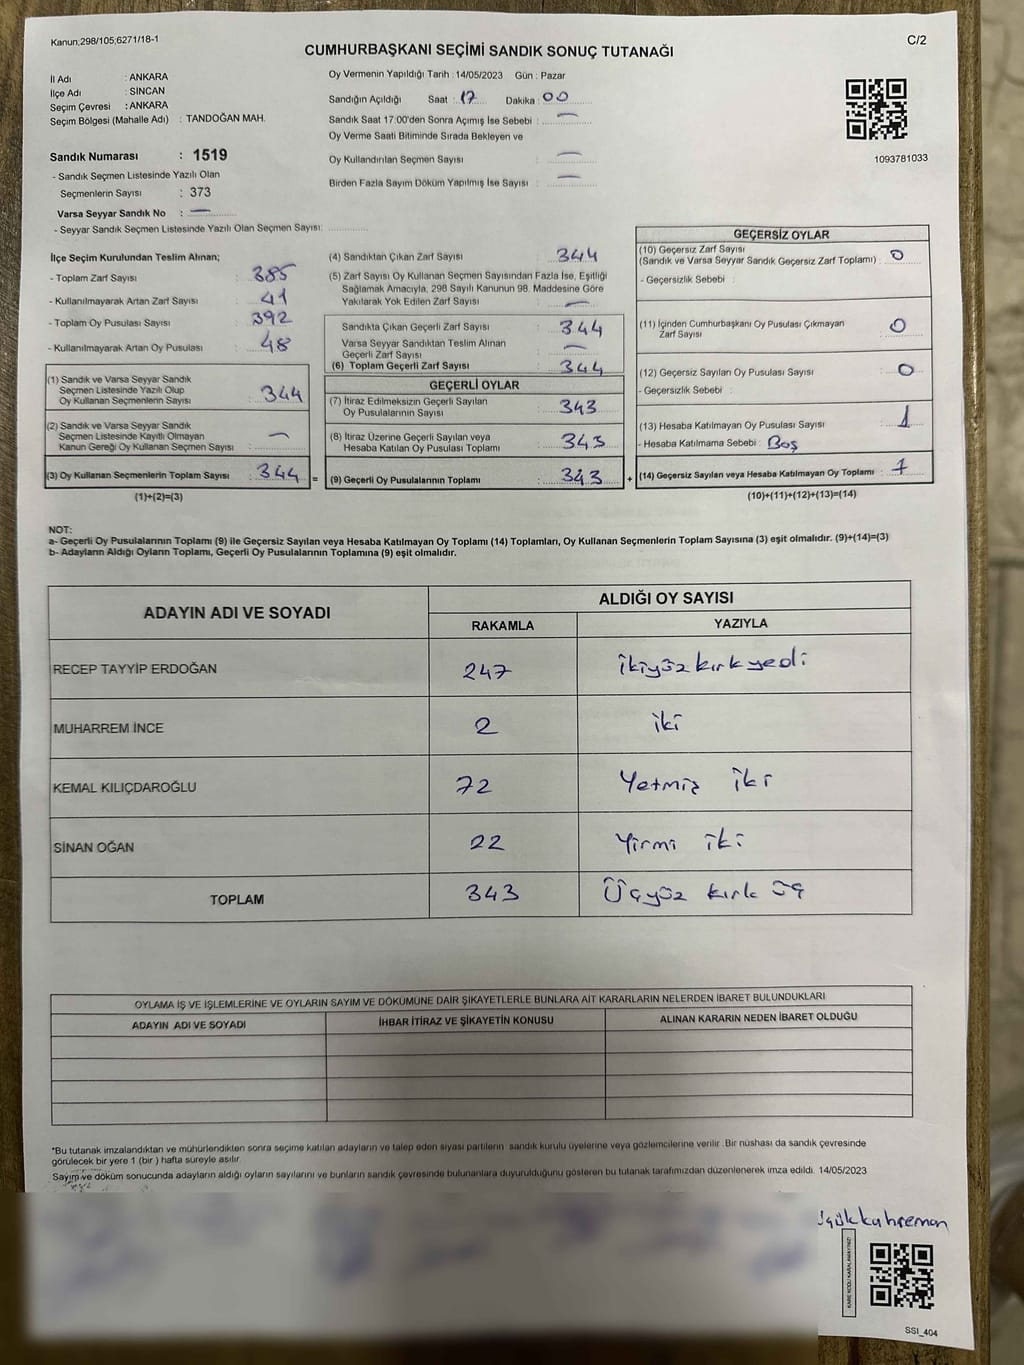 Kanun;298/105;6271/18-1
C/2
CUMHURBAŞKANI SEÇİMİ SANDIK SONUÇ TUTANAĞI
İl Adı : ANKARA
İlçe Adı : SİNCAN
Seçim Çevresi : ANKARA
Seçim Bölgesi (Mahalle Adı) : TANDOĞAN MAH.
Sandık Numarası : 1519
- Sandık Seçmen Listesinde Yazılı Olan
Seçmenlerin Sayısı : 373
Varsa Seyyar Sandık No : —
- Seyyar Sandık Seçmen Listesinde Yazılı Olan Seçmen Sayısı:
Oy Vermenin Yapıldığı Tarih : 14/05/2023 Gün : Pazar
Sandığın Açıldığı Saat : 17 Dakika : 00
Sandık Saat 17:00'den Sonra Açımış İse Sebebi : —
Oy Verme Saati Bitiminde Sırada Bekleyen ve
Oy Kullandırılan Seçmen Sayısı : —
Birden Fazla Sayım Döküm Yapılmış İse Sayısı : —
1093781033
İlçe Seçim Kurulundan Teslim Alınan;
- Toplam Zarf Sayısı : 385
- Kullanılmayarak Artan Zarf Sayısı : 41
- Toplam Oy Pusulası Sayısı : 392
- Kullanılmayarak Artan Oy Pusulası : 48
(1) Sandık ve Varsa Seyyar Sandık
Seçmen Listesinde Yazılı Olup
Oy Kullanan Seçmenlerin Sayısı : 344
(2) Sandık ve Varsa Seyyar Sandık
Seçmen Listesinde Kayıtlı Olmayan
Kanun Gereği Oy Kullanan Seçmen Sayısı : —
(3) Oy Kullanan Seçmenlerin Toplam Sayısı : 344 =
(1)+(2)=(3)
(4) Sandıktan Çıkan Zarf Sayısı : 344
(5) Zarf Sayısı Oy Kullanan Seçmen Sayısından Fazla İse, Eşitliği
Sağlamak Amacıyla, 298 Sayılı Kanunun 98. Maddesine Göre
Yakılarak Yok Edilen Zarf Sayısı : —
Sandıkta Çıkan Geçerli Zarf Sayısı : 344
Varsa Seyyar Sandıktan Teslim Alınan
Geçerli Zarf Sayısı : —
(6) Toplam Geçerli Zarf Sayısı : 344
GEÇERLİ OYLAR
(7) İtiraz Edilmeksizin Geçerli Sayılan
Oy Pusulalarının Sayısı : 343
(8) İtiraz Üzerine Geçerli Sayılan veya
Hesaba Katılan Oy Pusulası Toplamı : 343
(9) Geçerli Oy Pusulalarının Toplamı : 343 +
GEÇERSİZ OYLAR
(10) Geçersiz Zarf Sayısı
(Sandık ve Varsa Seyyar Sandık Geçersiz Zarf Toplamı) : 0
- Geçersizlik Sebebi :
(11) İçinden Cumhurbaşkanı Oy Pusulası Çıkmayan
Zarf Sayısı : 0
(12) Geçersiz Sayılan Oy Pusulası Sayısı : 0
- Geçersizlik Sebebi :
(13) Hesaba Katılmayan Oy Pusulası Sayısı : 1
- Hesaba Katılmama Sebebi : Boş
(14) Geçersiz Sayılan veya Hesaba Katılmayan Oy Toplamı : 1
(10)+(11)+(12)+(13)=(14)
NOT:
a- Geçerli Oy Pusulalarının Toplamı (9) ile Geçersiz Sayılan veya Hesaba Katılmayan Oy Toplamı (14) Toplamları, Oy Kullanan Seçmenlerin Toplam Sayısına (3) eşit olmalıdır. (9)+(14)=(3)
b- Adayların Aldığı Oyların Toplamı, Geçerli Oy Pusulalarının Toplamına (9) eşit olmalıdır.
ADAYIN ADI VE SOYADI ALDIĞI OY SAYISI
RAKAMLA YAZIYLA
RECEP TAYYİP ERDOĞAN 247 ikiyüz kırk yedi
MUHARREM İNCE 2 iki
KEMAL KILIÇDAROĞLU 72 Yetmiş iki
SİNAN OĞAN 22 Yirmi iki
TOPLAM 343 Üçyüz kırk üç
OYLAMA İŞ VE İŞLEMLERİNE VE OYLARIN SAYIM VE DÖKÜMÜNE DAİR ŞİKAYETLERLE BUNLARA AİT KARARLARIN NELERDEN İBARET BULUNDUKLARI
ADAYIN ADI VE SOYADI İHBAR İTİRAZ VE ŞİKAYETİN KONUSU ALINAN KARARIN NEDEN İBARET OLDUĞU
*Bu tutanak imzalandıktan ve mühürlendikten sonra seçime katılan adayların ve talep eden siyasi partilerin sandık kurulu üyelerine veya gözlemcilerine verilir. Bir nüshası da sandık çevresinde
görülecek bir yere 1 (bir ) hafta süreyle asılır.
Sayım ve döküm sonucunda adayların aldığı oyların sayılarını ve bunların sandık çevresinde bulunanlara duyurulduğunu gösteren bu tutanak tarafımızdan düzenlenerek imza edildi. 14/05/2023
KARE KODU KARALAMAYINIZ!
SSI_404